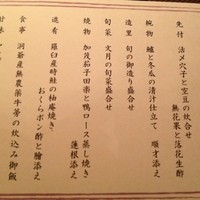 先付 活〆穴子と空豆の炊合せ
無花果と落花生酢
椀物 鱸と冬瓜の清汁仕立て 順才添え
造里 旬の御造り盛合せ
旬菜 文月の旬菜盛合せ
焼物 加茂茄子田楽と鴨ロース蒸し焼き
蓮根添え
進肴 羅臼産時鮭の柚庵焼き
おくらポン酢と檜添え
食事 洞爺産無農薬牛蒡の炊込み御飯
甘味